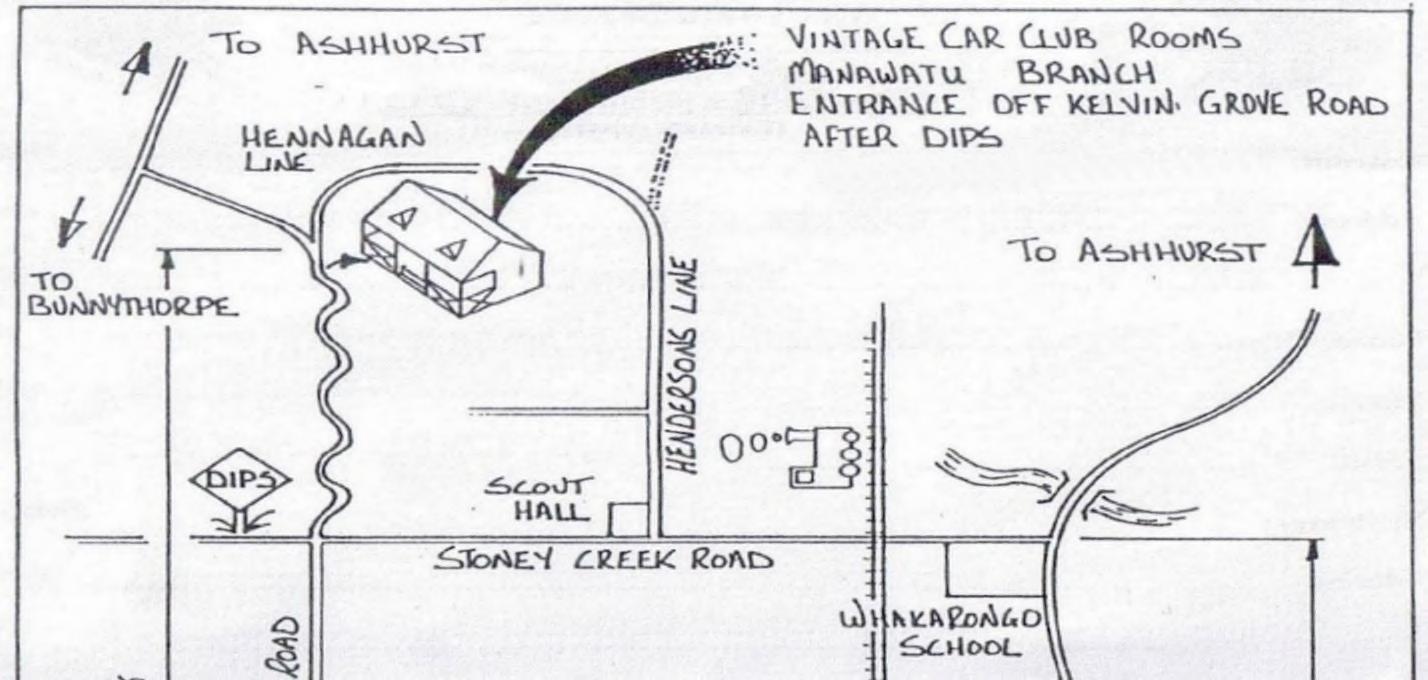 To ASHHURST
VINTAGE CAR CLUB ROOMS
MANAWATU BRANCH
ENTRANCE OFF KELVIN GROVE ROAD
AFTER DIPS
HENNAGAN
LINE
To ASHHURST
TO
BUNNYTHORPE
HENDERSONS LINE
DIPS
SCOUT
HALL
STONEY CREEK ROAD
WHAKARONGO
SCHOOL
ROAD